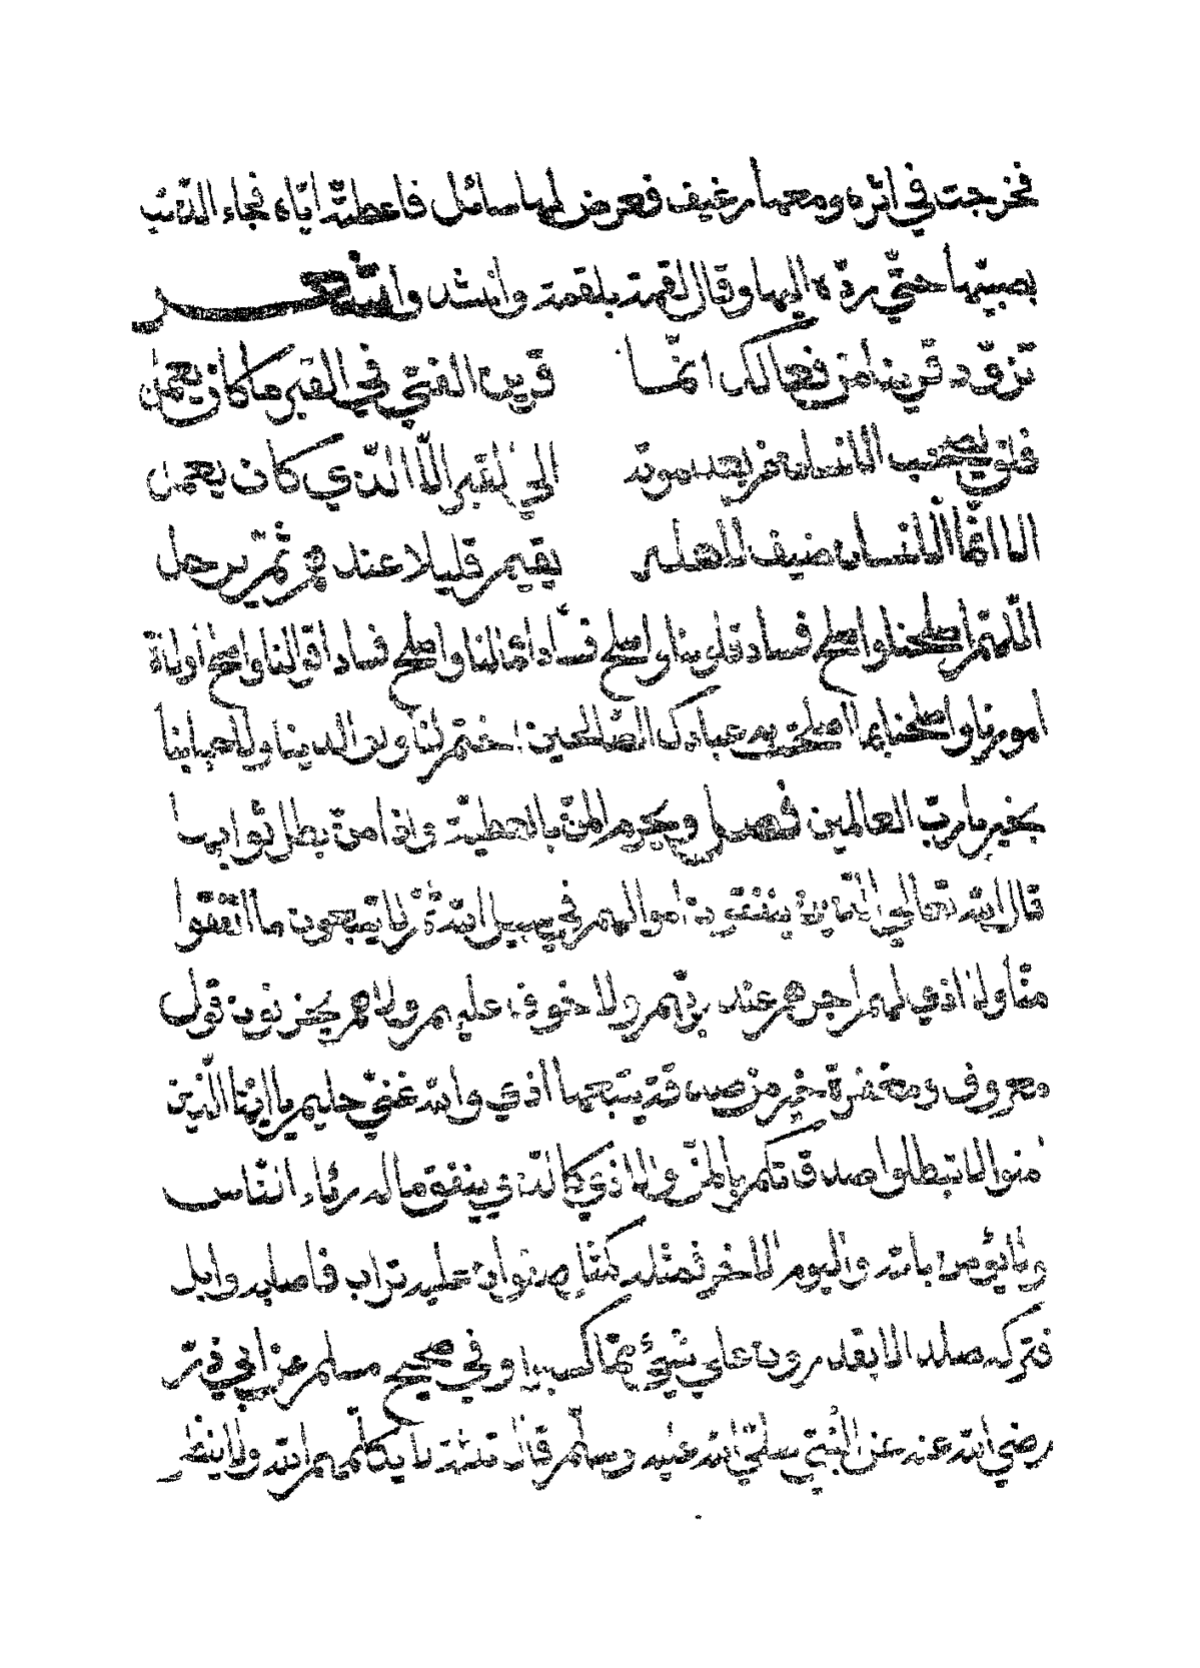 فخرجت في اثره ومعها رغيف فعرض لها سائل فاعطته اياه فجاء الذئب
بصبيها حتى رده اليها وقال لقمة بلقمة وانشد وا شعر
تزود قرينا من فعالك انما قرين الفتى في القبر ما كان يعمل
فلن يصحب الانسان من بعد موته الى القبر الا الذي كان يعمل
الا انما الانسان ضيف لاهله يقيم قليلا عندهم ثم يرحل
اللهم اصلحنا واصلح فساد قلوبنا واصلح فساد اعمالنا واصلح فساد اقوالنا واصلح ولاة
امورنا واصلحنا بما اصلحت به عبادك الصالحين اختم لنا ولوالدينا ولاحبابنا
بخير يا رب العالمين فصل ويحرم المن بالعطية واذا من بطل ثوابها
قال الله تعالى الذين ينفقون اموالهم في سبيل الله ثم لا يتبعون ما انفقوا
منا ولا اذي لهم اجرهم عند ربهم ولا خوف عليهم ولا هم يحزنون قول
معروف ومغفرة خير من صدقة يتبعها اذي والله غني حليم يا ايها الذين
امنوا لا تبطلوا صدقاتكم بالمن والاذي كالذي ينفق ماله رئاء الناس
ولا يؤمن بالله واليوم الاخر فمثله كمثل صفوان عليه تراب فاصابه وابل
فتركه صلدا لا يقدرون علي شيئ مما كسبوا وفي صحيح مسلم عن ابي ذر
رضي الله عنه عن النبي صلي الله عليه وسلم قال ثلثة لا يكلمهم الله ولا ينظر